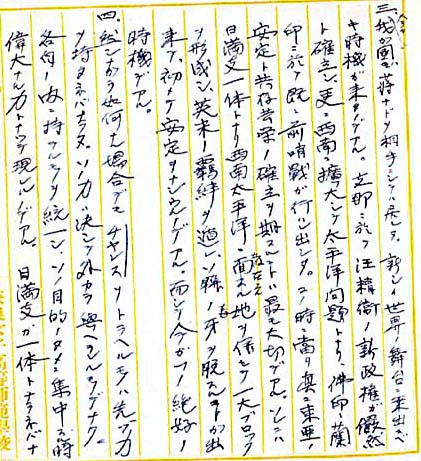 三、我ガ国ハ蒋ナドヲ相手ニシテハ居レヌ。新シイ世界ノ舞台ニ乗出スベ
キ時機ガ来タノデアル。支那ニ於テ汪精衛ノ新政権ガ儼然
ト確立シ更ニ西南ニ拡大シテ太平洋問題トナリ、佛印、蘭
印ニ於テ既ニ前哨戦ガ行ハレ出シタ。コノ時ニ当リ真ニ東亜ノ
安定ト共存共栄ノ確立ヲ期スルコトハ最モ大切デアル。ソレニハ
日満支一体トナリ西南太平洋ニ面スル地ヲ併セテ一大ブロック
ヲ形成シ、英米ノ覇絆ヲ逃レ、ソ聯ノ牙ヲ脱スルコトガ出
来テ初メテ安定ヲナシウルノデアル。而シテ今ガソノ絶好ノ
時機デアル。
四、然シナガラ如何ナル場合デモチヤンスヲトラヘルモノハ先ヅ力
ヲ持タネバナラヌ。ソノ力ハ決シテ外カラ與ヘラレルモノデナク
各自ノ内ニ持テルモノヲ統一シ、ソノ目的ノタメニ集中スル時
偉大ナル力トナツテ現レルノデアル。日満支ガ一体トナラネバナ